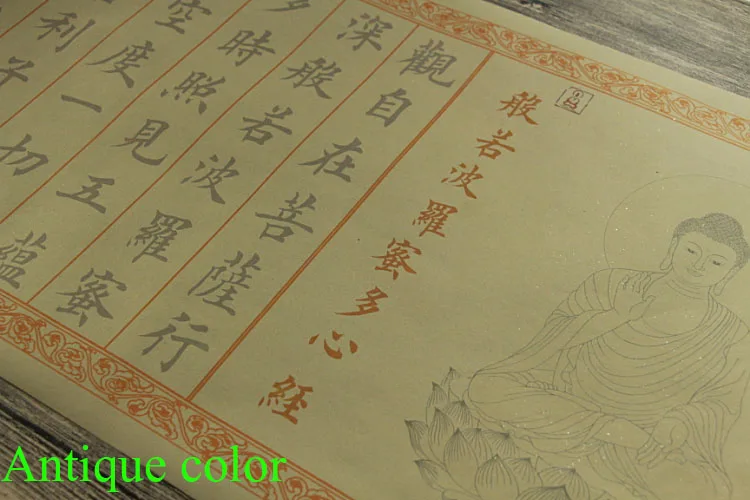 般若波羅蜜多心經
觀自在菩薩行
深般若波羅蜜
多時照見五蘊
空度一切
利子
Antique color